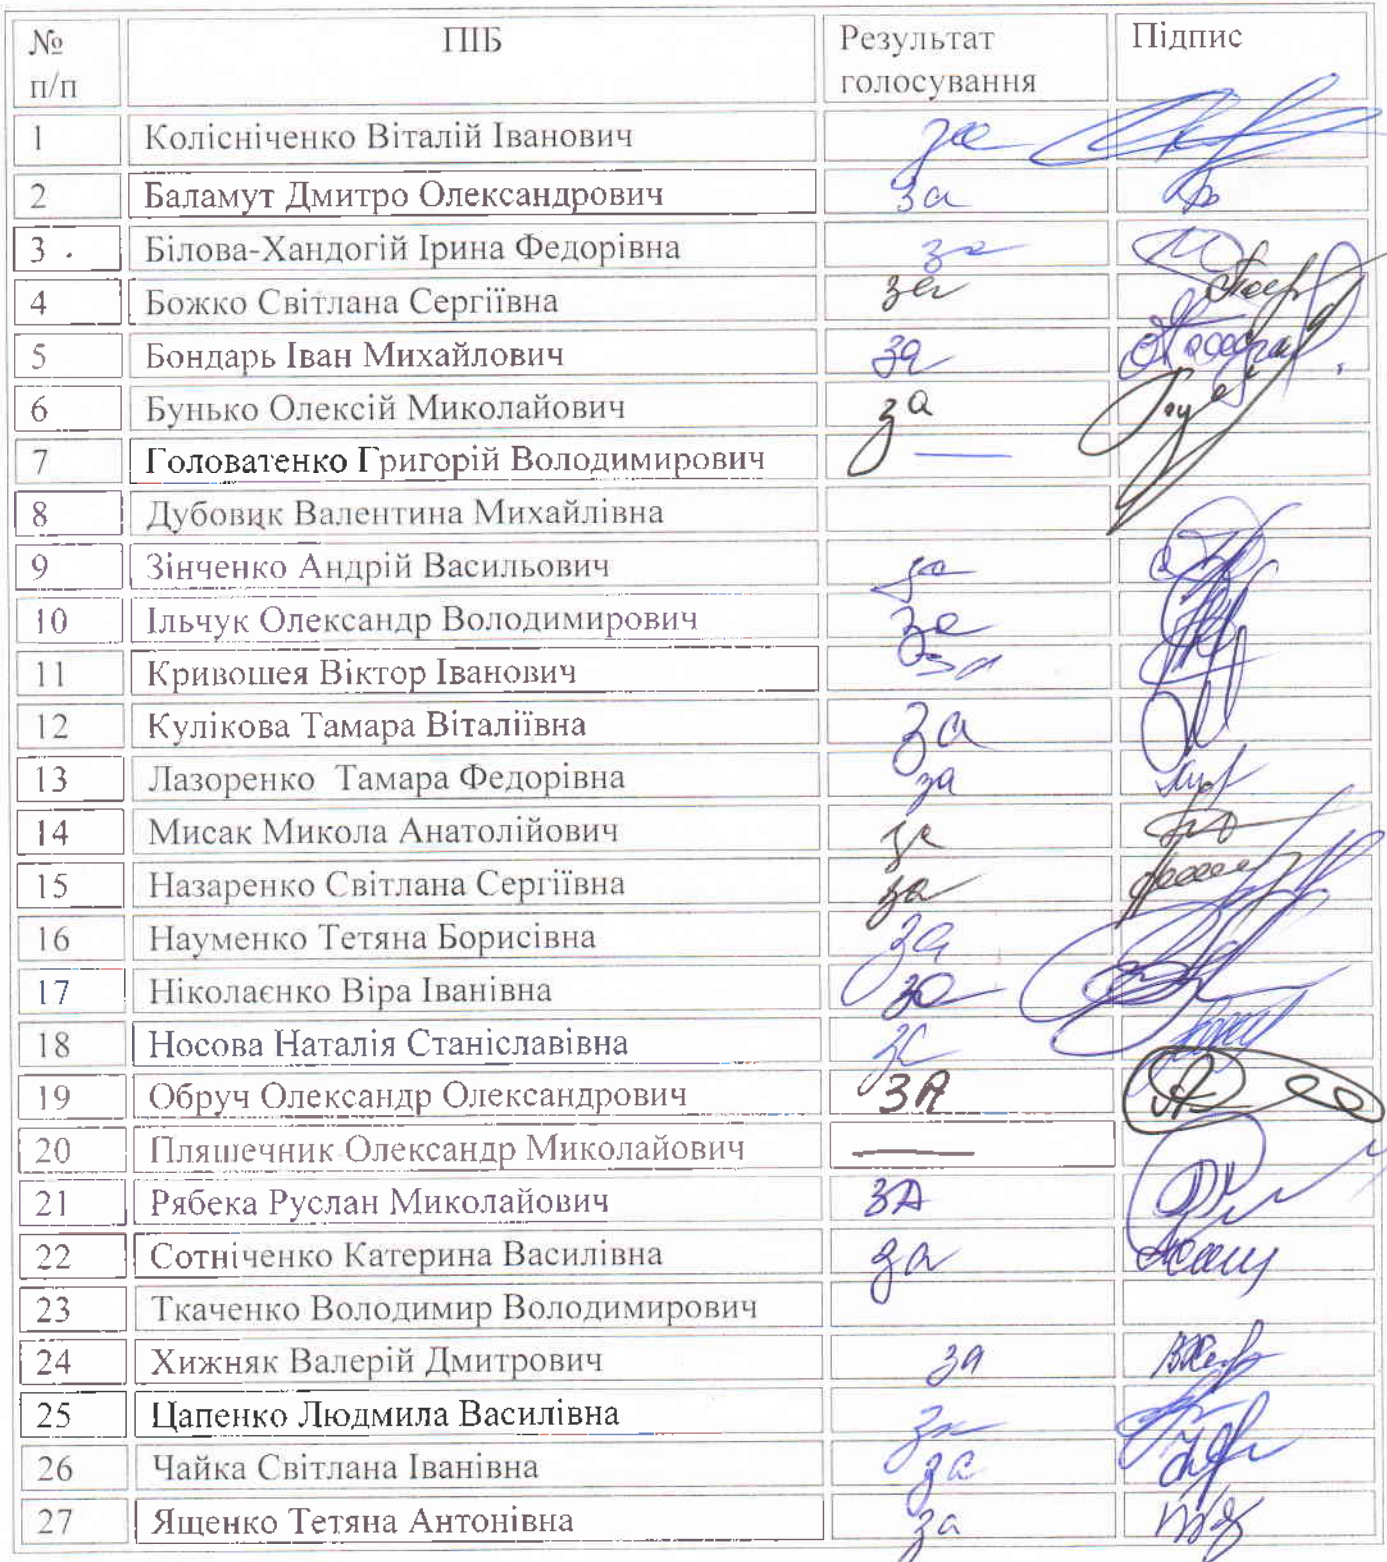 № п/п ПІБ Результат голосування Підпис
1 Колісніченко Віталій Іванович за
2 Баламут Дмитро Олександрович за
3 . Білова-Хандогій Ірина Федорівна за
4 Божко Світлана Сергіївна за
5 Бондарь Іван Михайлович за
6 Бунько Олексій Миколайович за
7 Головатенко Григорій Володимирович —
8 Дубовик Валентина Михайлівна
9 Зінченко Андрій Васильович за
10 Ільчук Олександр Володимирович за
11 Кривошея Віктор Іванович за
12 Кулікова Тамара Віталіївна за
13 Лазоренко Тамара Федорівна за
14 Мисак Микола Анатолійович за
15 Назаренко Світлана Сергіївна за
16 Науменко Тетяна Борисівна за
17 Ніколаєнко Віра Іванівна за
18 Носова Наталія Станіславівна за
19 Обруч Олександр Олександрович ЗА
20 Пляшечник Олександр Миколайович —
21 Рябека Руслан Миколайович ЗА
22 Сотніченко Катерина Василівна за
23 Ткаченко Володимир Володимирович
24 Хижняк Валерій Дмитрович за
25 Цапенко Людмила Василівна за
26 Чайка Світлана Іванівна за
27 Ященко Тетяна Антонівна за